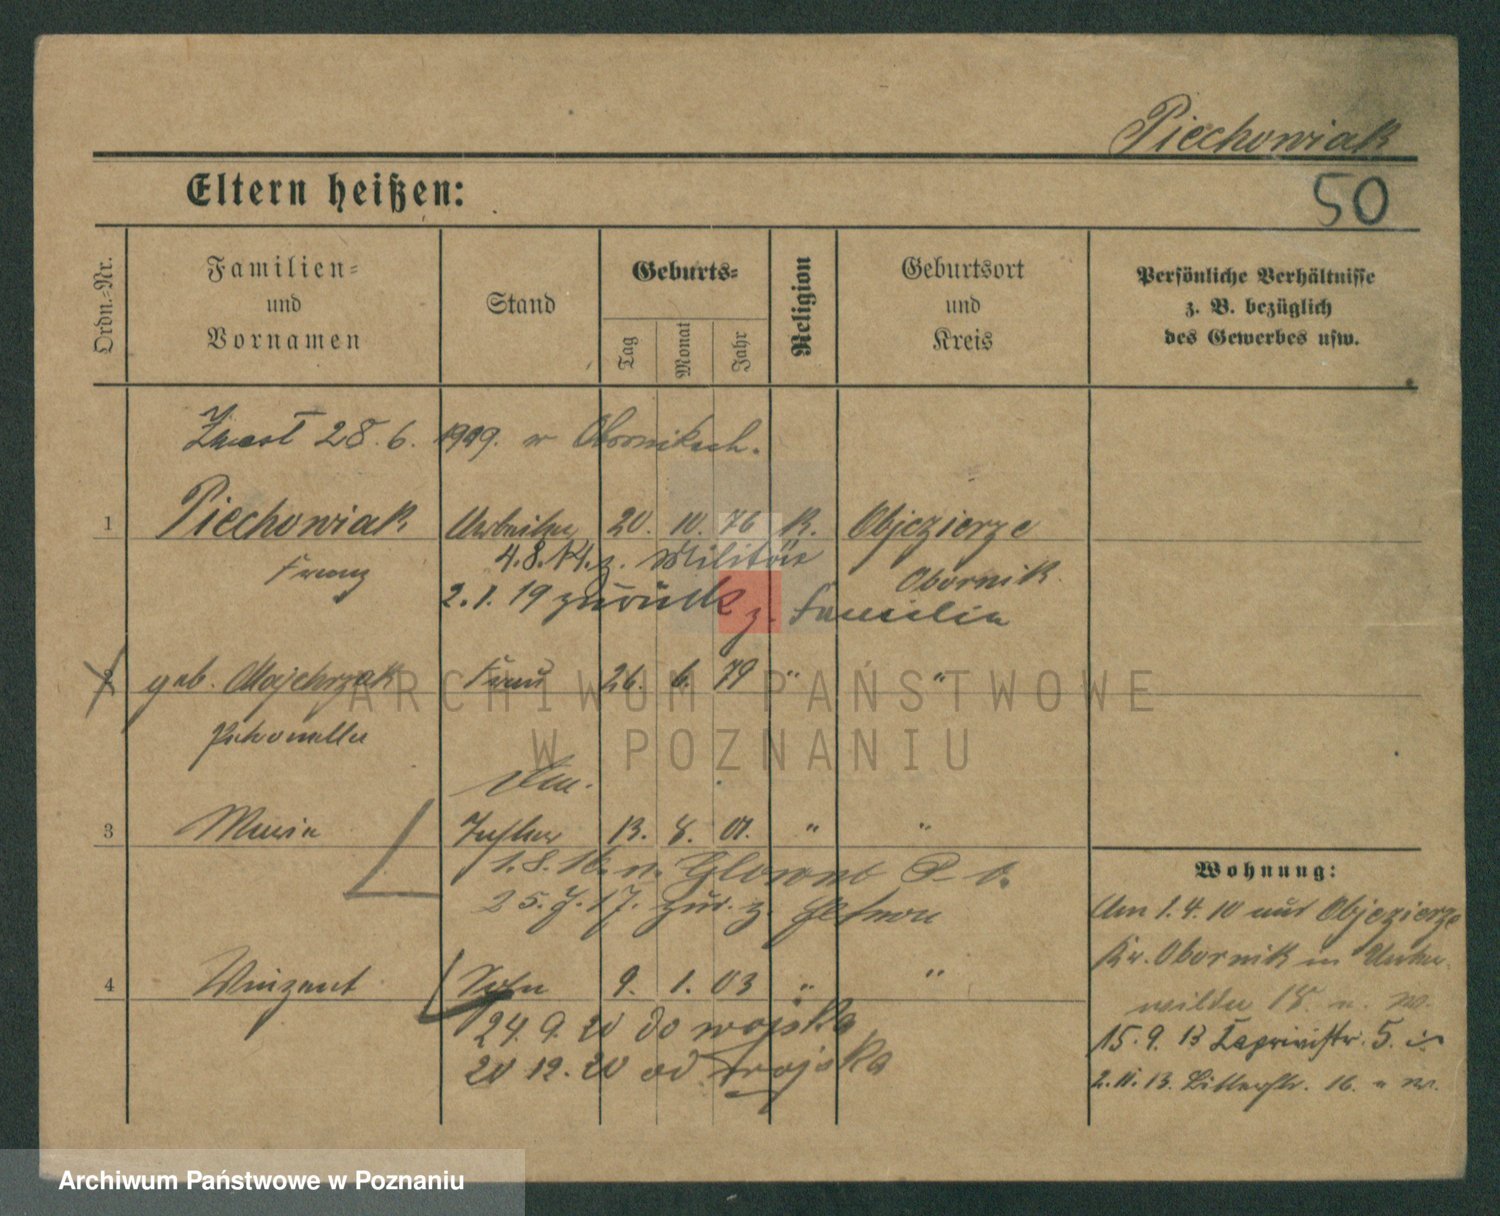 Piechowiak
Eltern heißen:
50
Ordn.=Nr.
Familien=
und
Vornamen
Stand
Geburts=
Tag
Monat
Jahr
Religion
Geburtsort
und
Kreis
Persönliche Verhältnisse
z. B. bezüglich
des Gewerbes usw.
28. 6. 1919. w Obornikach.
1 Piechowiak Arbeiter 20. 10. 76 K. Objezierze
Franz
4. 8. 14. z. Militär
Obornik.
2. 1. 19 zurück z. Familie
2 geb. Majchrzak Frau 26. 6. 79 " "
Petronella
3 Maria Tochter 13. 8. 01. " "
1. 8. 16. n. Glowno
25. 7. 17. zur. z.
4 Vinzent Sohn 9. 1. 03 " "
24. 9. 20 do wojska
20 12. 20 od wojska
Wohnung:
Am 1. 4. 10 aus Objezierze
Kr. Obornik in Unter
wilda 15.
15. 9. 13 5.
2. 11. 13. 16.
ARCHIWUM PAŃSTWOWE
W POZNANIU
Archiwum Państwowe w Poznaniu